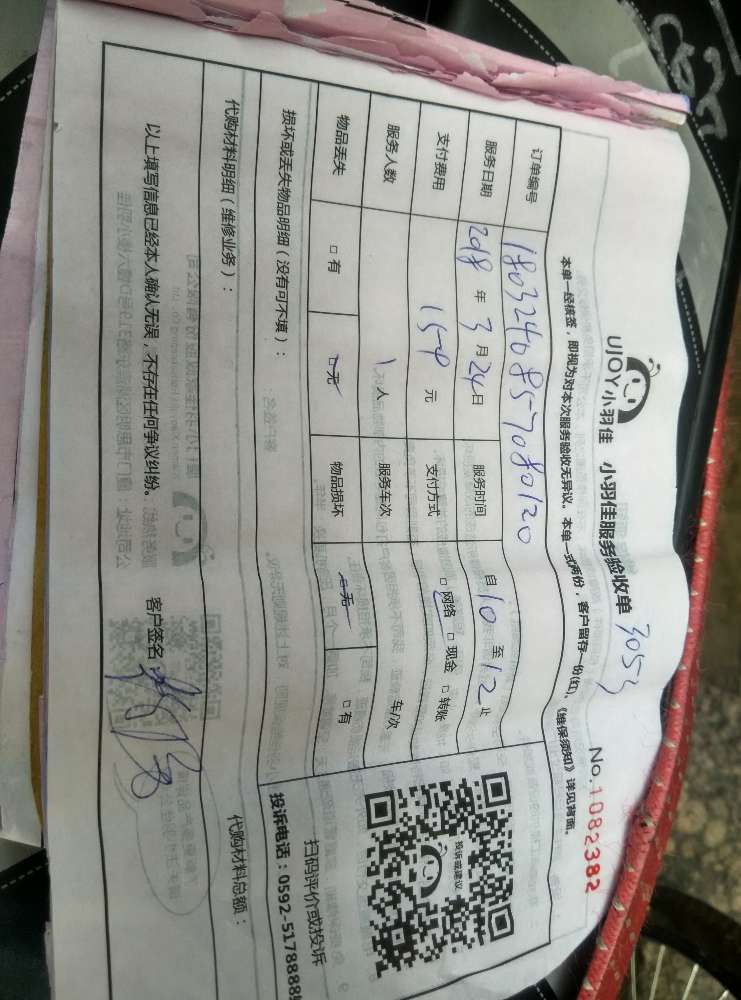 UJOY小羽佳 小羽佳服务验收单 3053
No.1082382
本单一经核签,即视为对本次服务验收无异议。本单一式两份,客户留存一份(红),《维保须知》详见背面。
订单编号
服务日期 2018 年 3 月 24 日 服务时间 自 10 至 12 止
支付费用 元 支付方式 □ 网络 □ 现金 □ 转账
服务人数 1 人 服务车次 车/次
物品丢失 □ 有 □ 无 物品损坏 □ 无 □ 有
投诉或建议
扫码评价或投诉
损坏或丢失物品明细(没有可不填):
投诉电话:0592-5178885
代购材料明细(维修业务):
代购材料总额:
以上填写信息已经本人确认无误,不存在任何争议纠纷。 客户签名